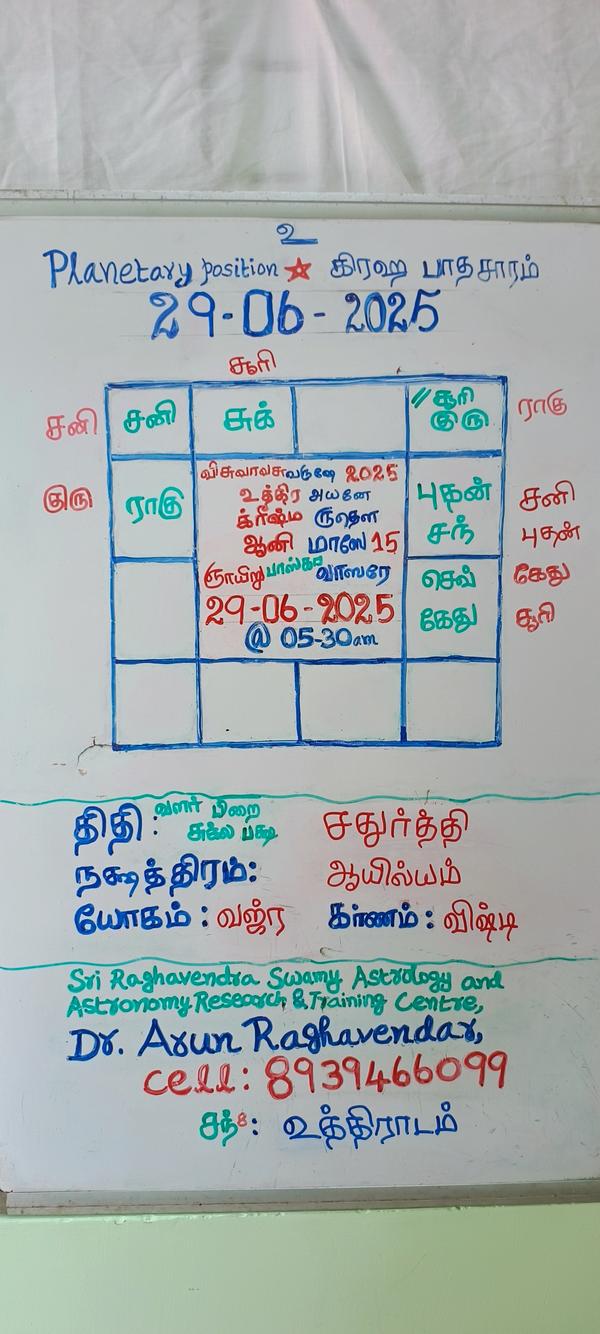 உ
Planetary position ☆ கிரஹ பாதசாரம்
29-06-2025
சூரி
சனி சனி சுக் // சூரி ராகு
குரு
குரு ராகு புதன் சனி
சந் புதன்
விசுவாவசுவருஷே 2025
உத்திர அயனே
க்ரீஷ்ம ருதௌ
ஆனி மாஸே 15
ஞாயிறு பாஸ்கர வாஸரே
29-06-2025
@ 05-30am
செவ் கேது
கேது சூரி
திதி: வளர் பிறை சதுர்த்தி
சுக்ல பக்ஷ
நக்ஷத்திரம்: ஆயில்யம்
யோகம்: வஜ்ர கர்ணம்: விஷ்டி
Sri Raghavendra Swamy Astrology and
Astronomy Research & Training Centre,
Dr. Arun Raghavendar,
cell: 8939466099
சந் 8: உத்திராடம்